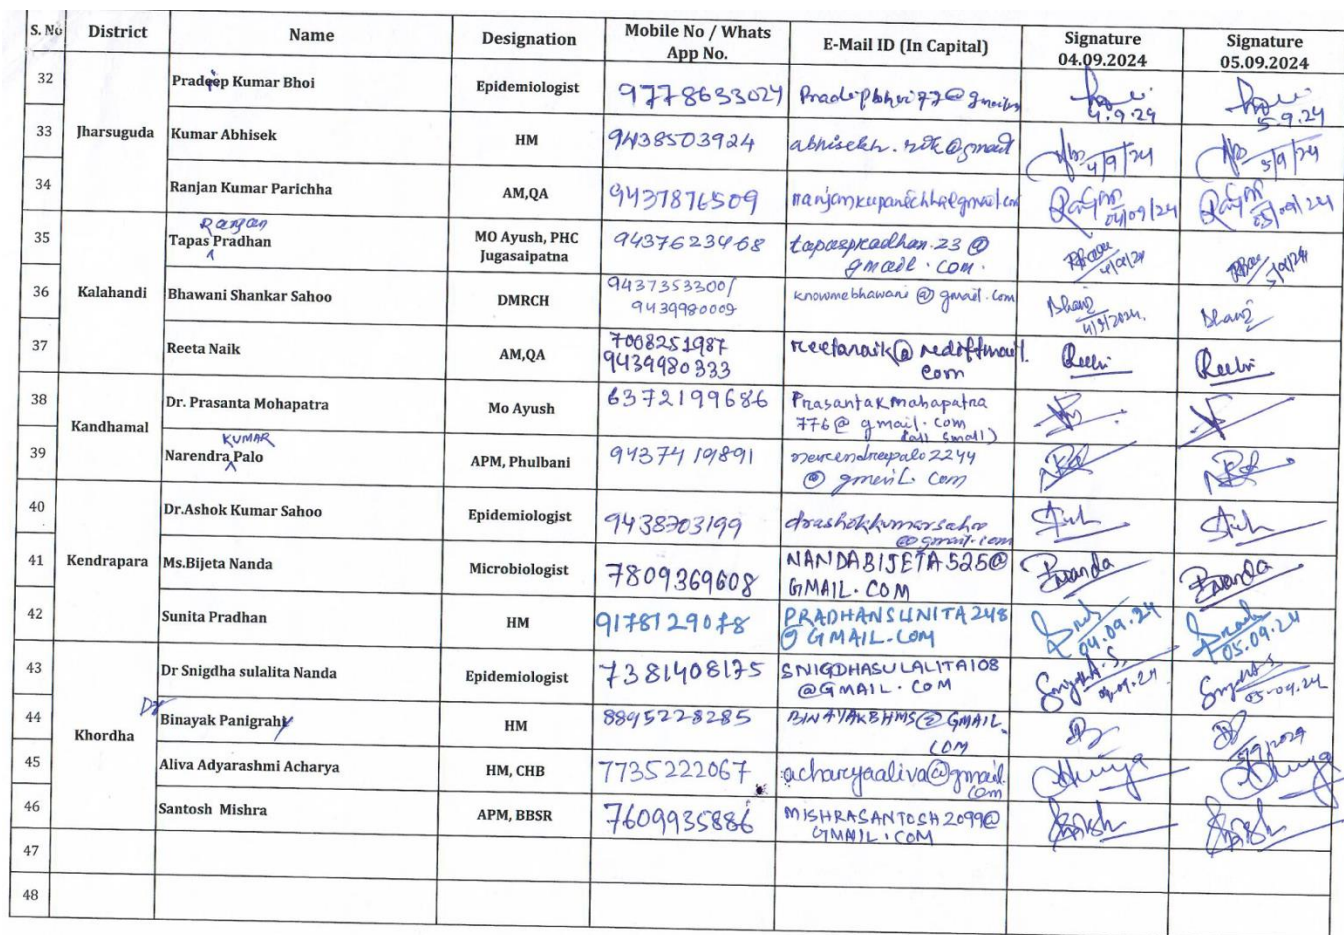 S. No District Name Designation Mobile No / Whats App No. E-Mail ID (In Capital) Signature 04.09.2024 Signature 05.09.2024
32 Jharsuguda Pradeep Kumar Bhoi Epidemiologist 9778633024 4.9.24 5-9.24
33 Kumar Abhisek HM 9438503924 4/9/24 5/9/24
34 Ranjan Kumar Parichha AM,QA 9437876509 04/09/24 05/09/24
35 Kalahandi Tapas Ranjan Pradhan MO Ayush, PHC Jugasaipatna 9437623468 tapaspradhan.23@
gmail.com.
36 Bhawani Shankar Sahoo DMRCH 9437353300/ knowmebhawani@gmail.com
9439980009 4/9/2024.
37 Reeta Naik AM,QA 7008251987 reetanaik@rediffmail.
9439980333 com
38 Kandhamal Dr. Prasanta Mohapatra Mo Ayush 6372199686 Prasantakmahapatra
776@gmail.com
(all small)
39 Narendra KUMAR Palo APM, Phulbani 9437419891 narendrapalo2244
@gmail.com
40 Kendrapara Dr.Ashok Kumar Sahoo Epidemiologist 9438703199 drashokkumarsahoo
@gmail.com
41 Ms.Bijeta Nanda Microbiologist 7809369608 NANDABIJETA525@ BNanda BNanda
GMAIL.COM
42 Sunita Pradhan HM 9178129078 PRADHANSUNITA248 04.09.24 05.09.24
@GMAIL.COM
43 Khordha Dr Snigdha sulalita Nanda Epidemiologist 7381408175 SNIGDHASULALITA108
@GMAIL.COM
44 Dr Binayak Panigrahy HM 8895228285 BINAYAKBHMS@GMAIL.
COM
45 Aliva Adyarashmi Acharya HM, CHB 7735222067 acharyaaliva@gmail.
com
46 Santosh Mishra APM, BBSR 7609935886 MISHRASANTOSH2099@
GMAIL.COM
47
48